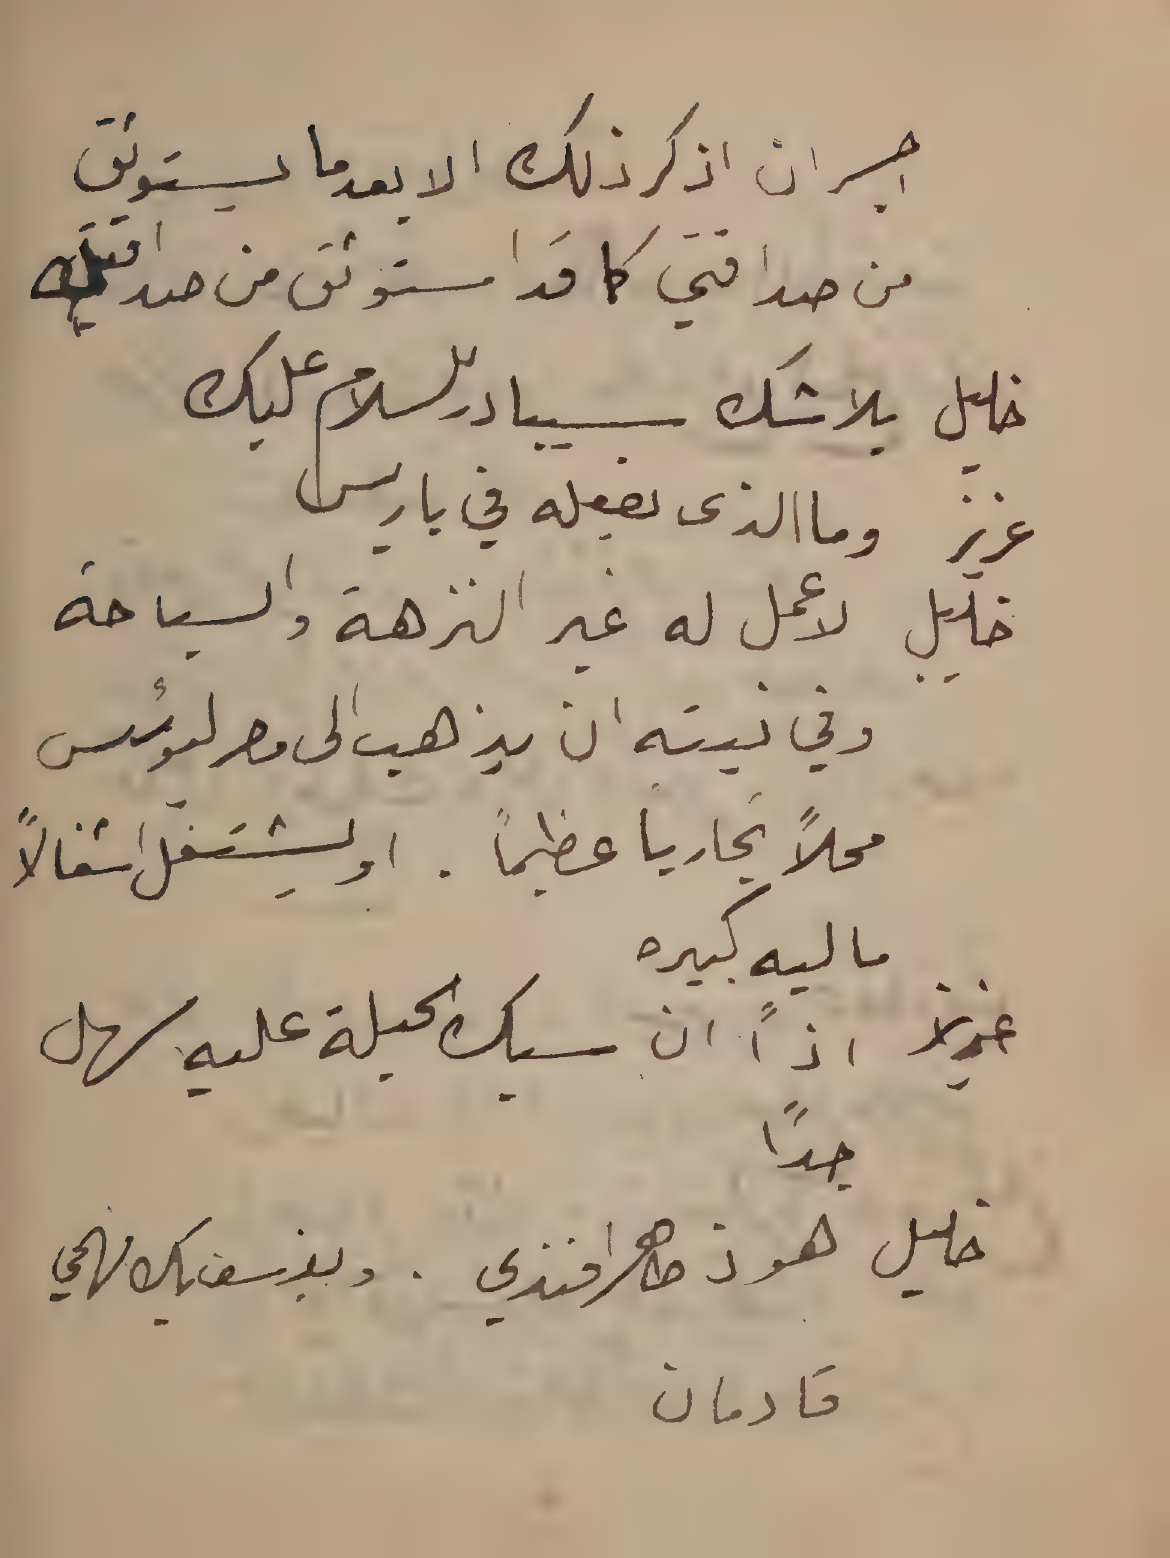 اجسر ان اذكر ذلك الا بعد ما يستوثق
من صداقتي كما قد استوثق من صداقتك
خليل بلا شك سيبادر للسلام عليك
عزيز وما الذى يفعله في باريس
خليل لا عمل له غير النزهة والسياحة
وفي نيته ان يذهب الى مصر ليؤسس
محلاً تجارياً عظيماً . او ليشتغل اشغالاً
ماليه كبيره
عزيز اذاً ان سبك الحيلة عليه سهل
جداً
خليل هوذ طاهر افندي . ويوسف بك فهمي
قادمان